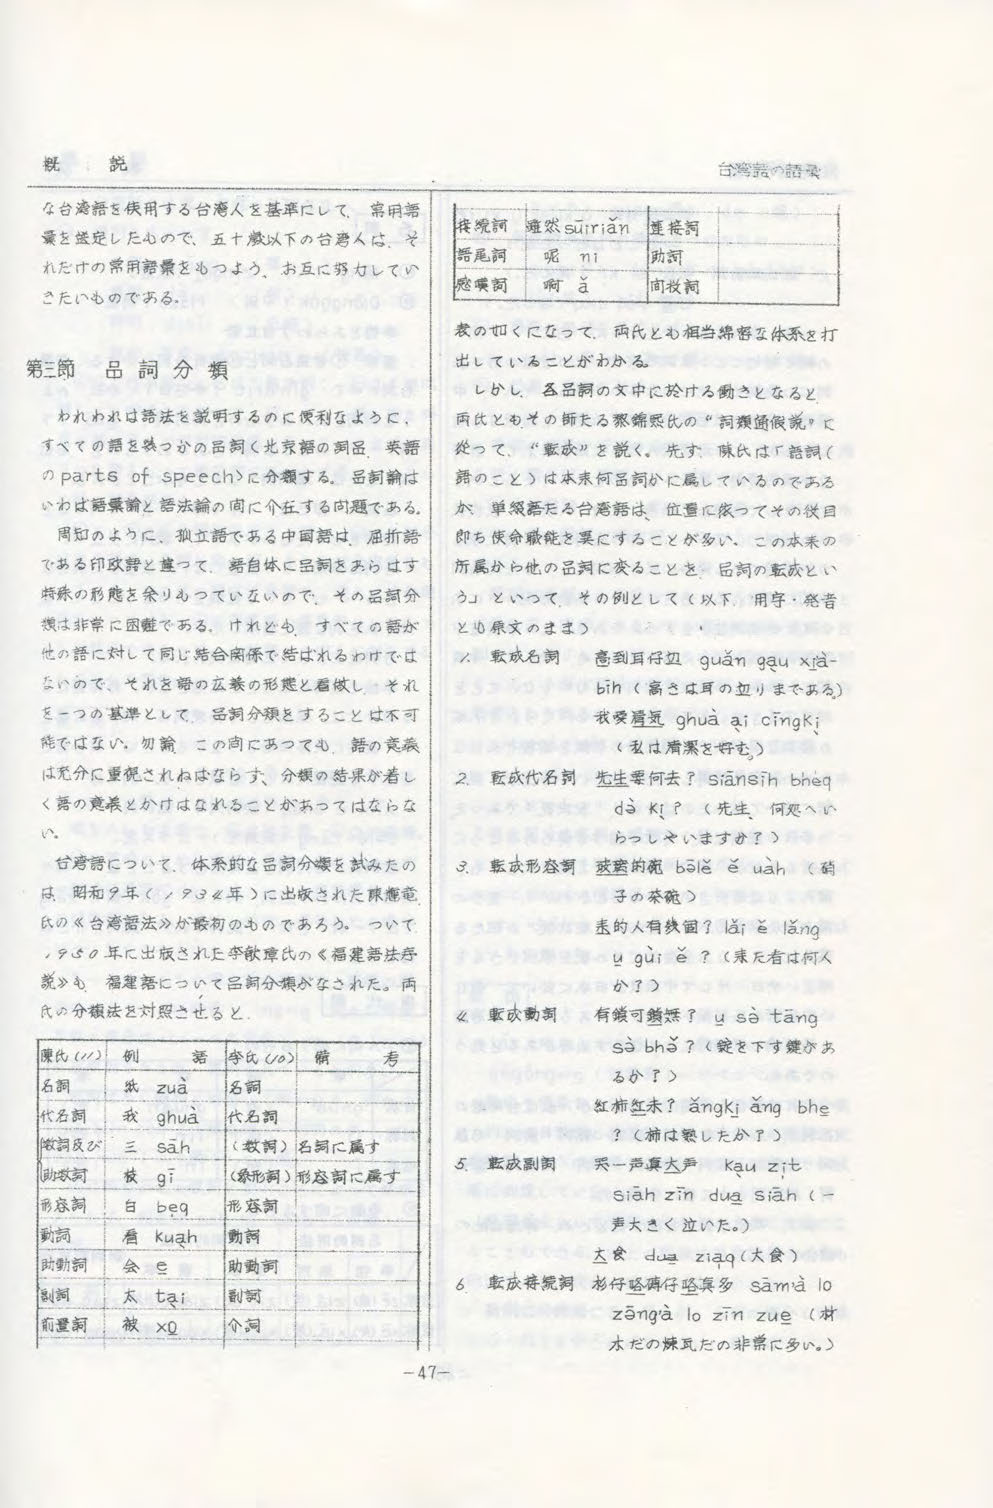 概　説
台湾語の語彙
な台湾語を使用する台湾人を基準にして、常用語
彙を選定したもので、五十歳以下の台湾人は、そ
れだけの常用語彙をもつよう、お互に努力してい
きたいものである。
第三節　品詞分類
われわれは語法を説明するのに便利なように、
すべての語を幾つかの品詞〈北京語の詞品、英語
のparts of speech〉に分類する。品詞論は
いわば語彙論と語法論の間に介在する問題である。
周知のように、孤立語である中国語は、屈折語
である印欧語と違って、語自体に品詞をあらはす
特殊の形態を余りもっていないので、その品詞分
類は非常に困難である。けれども、すべての語が
他の語に対して同じ結合関係で結ばれるわけでは
ないので、それを語の広義の形態と看做し、それ
を一つの基準として、品詞分類をすることは不可
能ではない。勿論、この間にあっても、語の意義
は充分に重視されねばならず、分類の結果が著し
く語の意義とかけはなれることがあってはならな
い。
台湾語について、体系的な品詞分類を試みたの
は、昭和9年(1934年)に出版された陳應竜
氏の《台湾語法》が最初のものであろう。ついで
1950年に出版された李献璋氏の《福建語法序
説》も、福建語について品詞分類がなされた。両
氏の分類法を対照させると、
陳氏(11)　例　語　李氏(10)　備　考
名詞　紙 zuà　名詞
代名詞　我 ghuà　代名詞
数詞及び　三 sāh　(数詞)　名詞に属す
助数詞　枝 gī　(象形詞)　形容詞に属す
形容詞　白 beq　形容詞
動詞　看 kuah　動詞
助動詞　会 e　助動詞
副詞　太 tai　副詞
前置詞　被 xo　介詞
接続詞　雖然 suīriǎn　連接詞
語尾詞　呢 nī　助詞
感嘆詞　啊 ǎ　間投詞
表の如くになって、両氏とも相当綿密な体系を打
出していることがわかる。
しかし、各品詞の文中に於ける働きとなると、
両氏ともその師たる黎錦熙氏の“詞類通假説”に
従って、“転成”を説く。先ず、陳氏は「語詞(
語のこと)は本来何品詞かに属しているのである
が、単綴語たる台湾語は、位置に依ってその役目
即ち使命職能を異にすることが多い、この本来の
所属から他の品詞に変ることを、品詞の転成とい
う」といって、その例として(以下、用字・発音
とも原文のまま)
1. 転成名詞　高到耳仔辺 guǎn gau xià-
bīh (高さは耳の辺りまである)
我愛清気 ghuà ài cīngkì
(私は清潔を好む)
2. 転成代名詞　先生要何去? siānsīh bhèq
dà kì? (先生、何処へい
らっしゃいますか?)
3. 転成形容詞　玻璃的碗 bālě ě uàh (硝
子の茶碗)
来的人有幾個? lǎi ě lǎng
u gùi ě? (来た者は何人
か?)
4. 転成動詞　有鎖可鎖無? u sà tāng
sà bhǒ? (錠を下す鍵があ
るか?)
紅柿紅未? ǎngki ǎng bhe
? (柿は熟したか?)
5. 転成副詞　哭一声真大声 kau zit
siāh zīn dua siāh (一
声大きく泣いた。)
大食 dua ziaq(大食)
6. 転成接続詞　杉仔咯磚仔咯真多 sām'à lo
zēng'à lo zīn zue (材
木だの煉瓦だの非常に多い。)
—47—